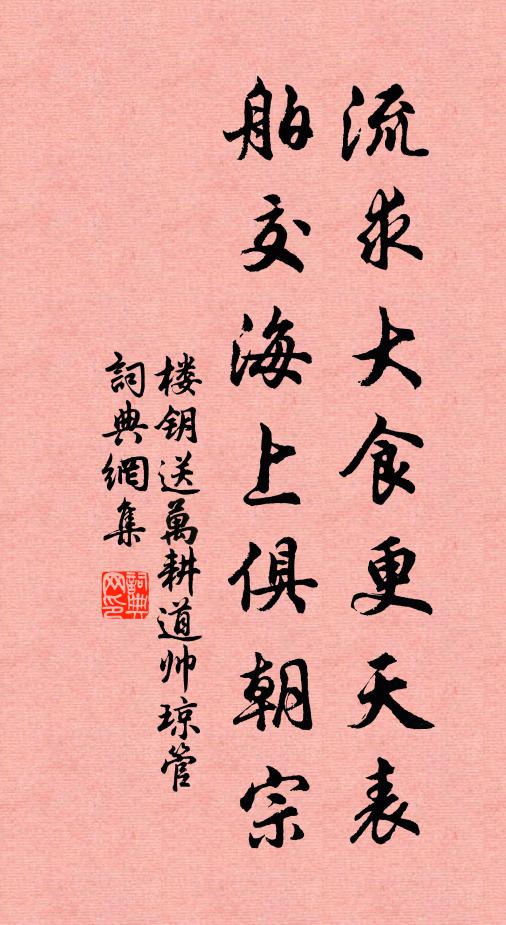 流求大食更天表
舶交海上俱朝宗
楼钥送萬耕道帅琼管
詞典網集
詞典网印